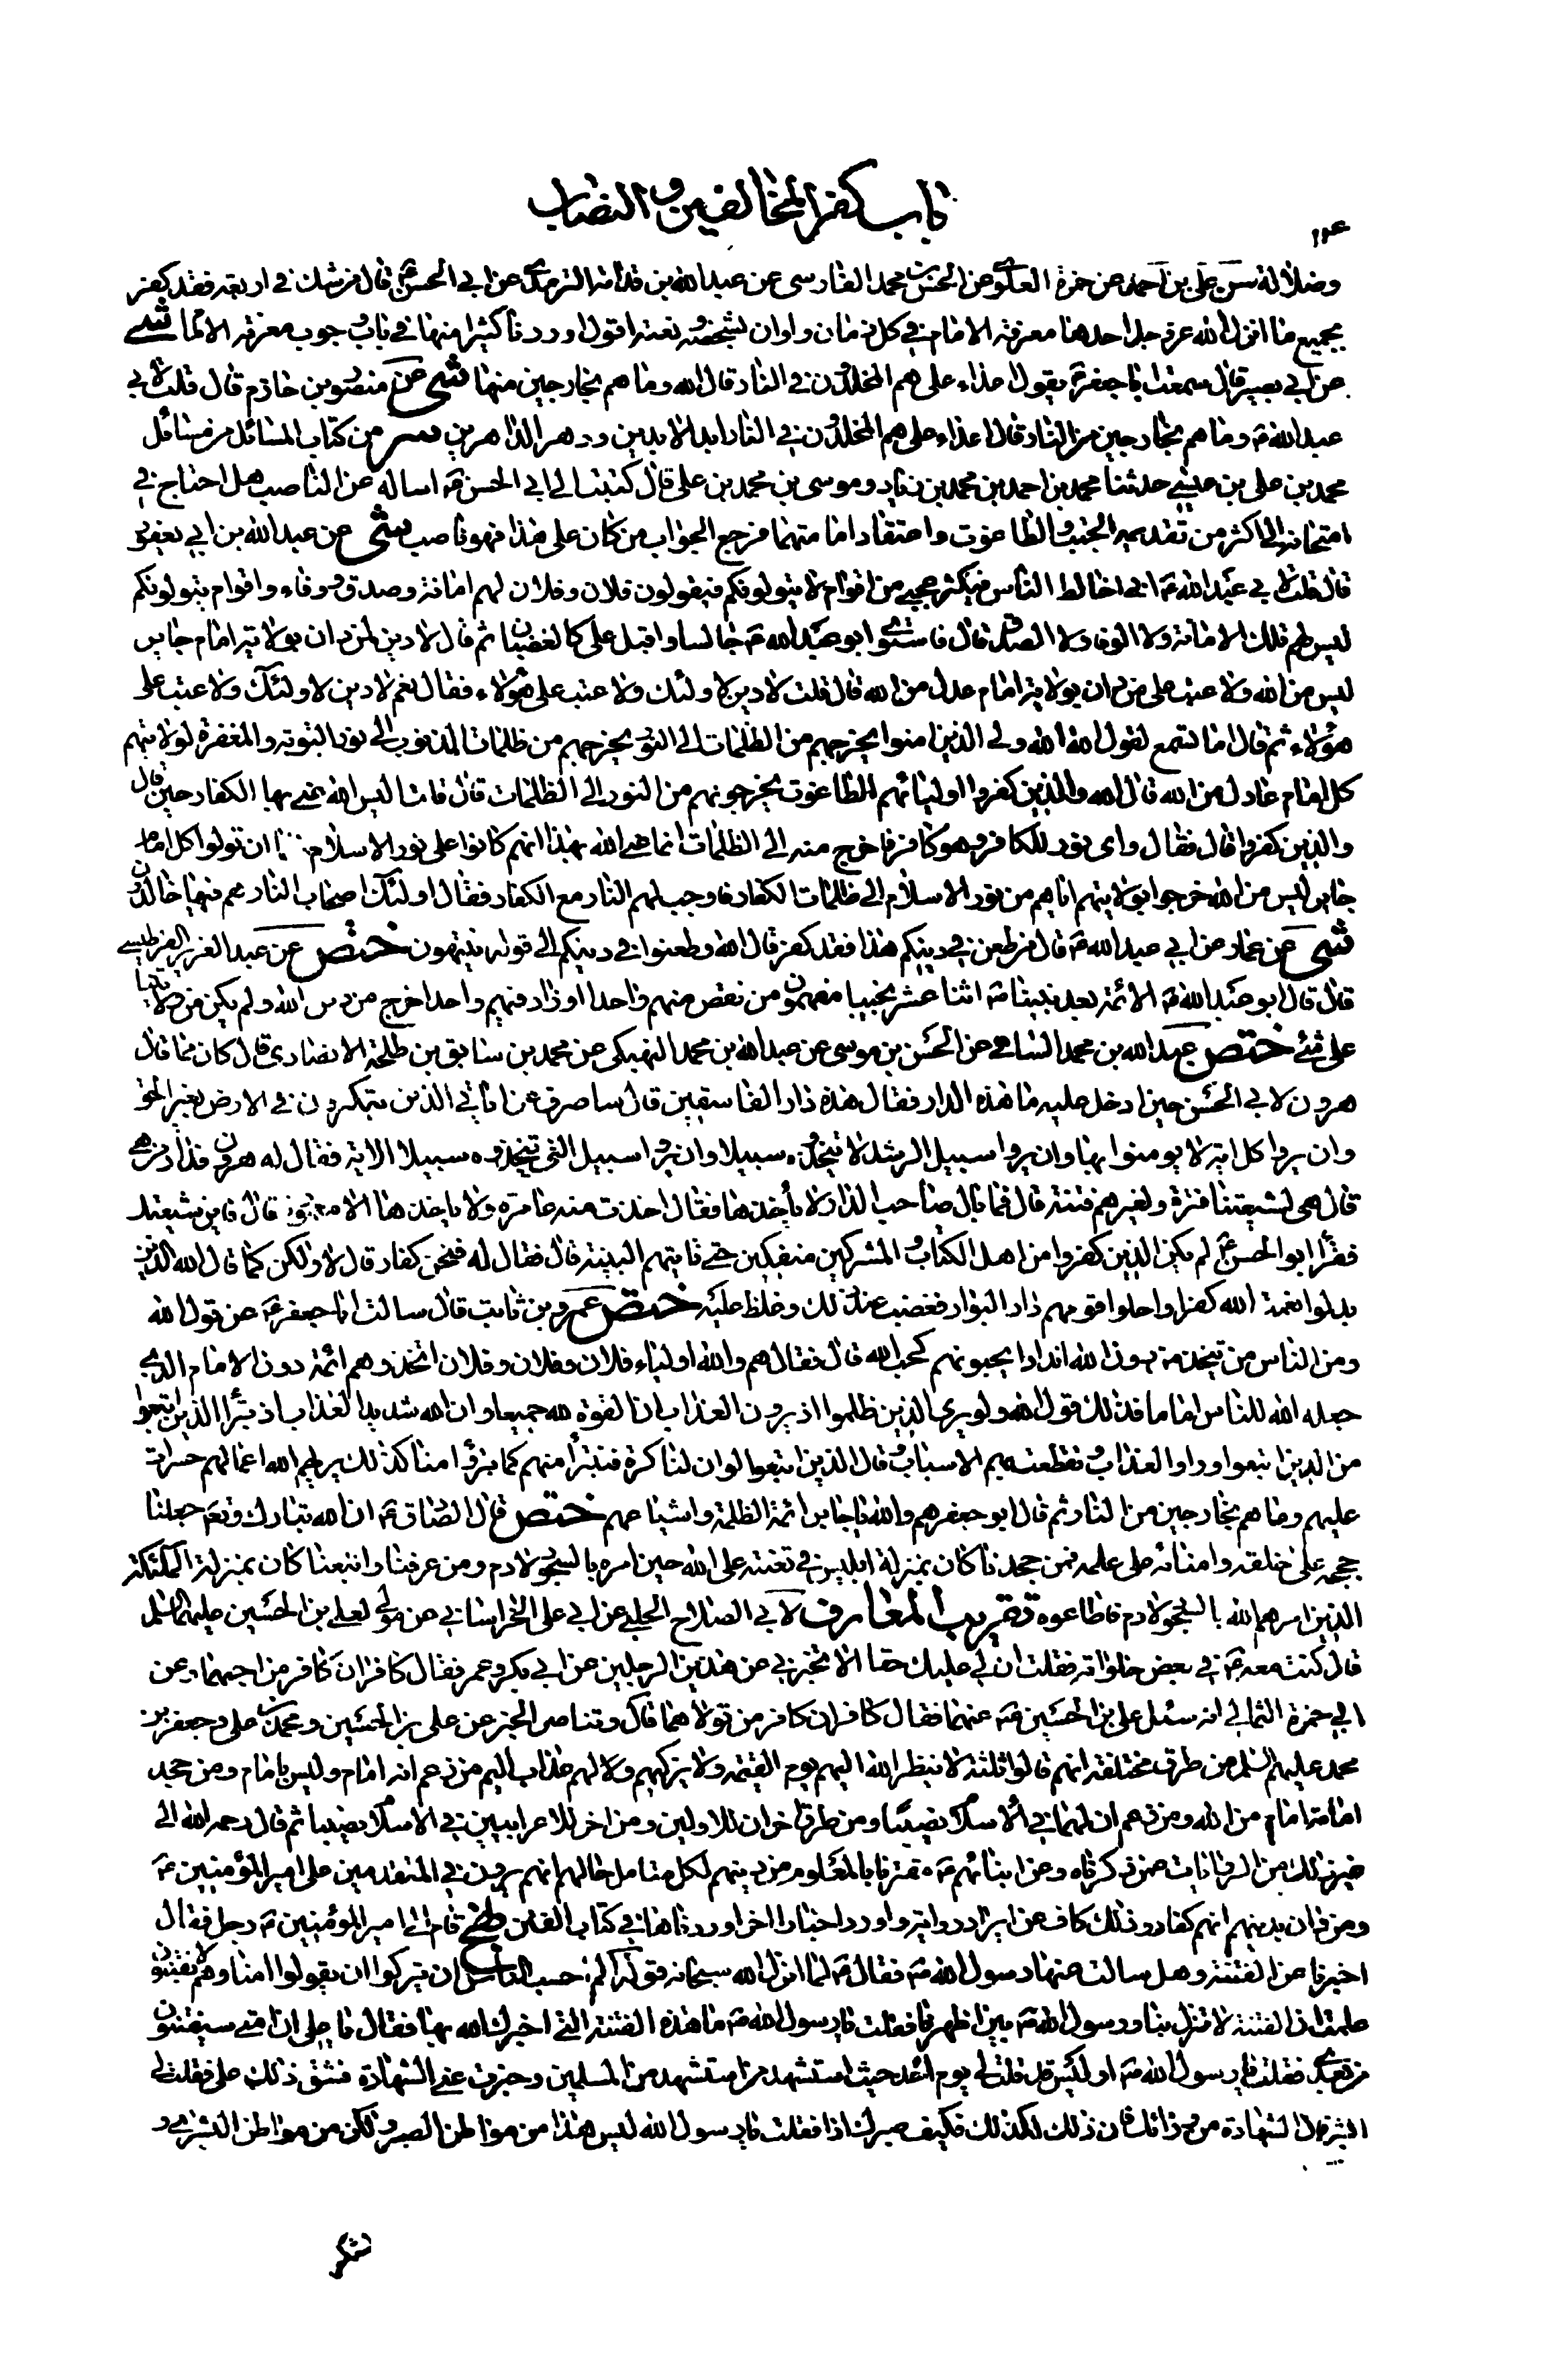 باب كفر المخالفين والنصاب
وضلالة سن علي بن أحمد عن حمزة العلوي عن الحسن بن محمد الفارسي عن عبد الله بن قدامة الترمذي عن ابي الحسن ع قال من شك في اربعة فقد كفر
بجميع ما انزل الله عز وجل احدها معرفة الامام في كل زمان واوان بشخصه ونعته اقول اوردنا كثيرا منها في باب وجوب معرفة الامام شى
عن ابي بصير قال سمعت ابا جعفر ع يقول اعداء علي هم المخلدون في النار قال الله وما هم بخارجين منها شى عن منصور بن حازم قال قلت لابي
عبد الله ع وما هم بخارجين من النار قال اعداء علي هم المخلدون في النار ابد الابدين ودهر الداهرين سر من كتاب المسائل من مسائل
محمد بن علي بن عيسى حدثنا محمد بن احمد بن محمد بن زياد وموسى بن محمد بن علي قال كتبت الى ابي الحسن ع اساله عن الناصب هل احتاج في
امتحانه الى اكثر من تقديمه الجبت والطاغوت واعتقاد امامتهما فرجع الجواب من كان على هذا فهو ناصب شى عن عبد الله بن ابي يعفور
قال قلت لابي عبد الله ع اني اخالط الناس فيكثر عجبي من اقوام لا يتولونكم فيقولون فلان وفلان لهم امانة وصدق ووفاء واقوام يتولونكم
ليس لهم تلك الامانة ولا الوفا ولا الصدق قال فاستوى ابو عبد الله ع جالسا واقبل علي كالغضبان ثم قال لا دين لمن دان بولاية امام جاير
ليس من الله ولا عتب على من دان بولاية امام عدل من الله قال قلت لا دين لاولئك ولا عتب على هؤلاء فقال نعم لا دين لاولئك ولا عتب على
هؤلاء ثم قال اما تسمع لقول الله الله ولي الذين امنوا يخرجهم من الظلمات الى النور يخرجهم من ظلمات الذنوب الى نور التوبة والمغفرة لولايتهم
كل امام عادل من الله قال الله والذين كفروا اوليائهم الطاغوت يخرجونهم من النور الى الظلمات قال قلت اليس الله يعني بها الكفار حين قال
والذين كفروا قال فقال واي نور للكافر وهو كافر فاخرج منه الى الظلمات انما عنى الله بهذا انهم كانوا على نور الاسلام ان تولوا كل امام
جاير ليس من الله خرجوا بولايتهم اياهم من نور الاسلام الى ظلمات الكفر فاوجب لهم النار مع الكفار فقال اولئك اصحاب النار هم فيها خالدون
شى عن عمار عن ابي عبد الله ع قال من طعن في دينكم هذا فقد كفر قال الله وطعنوا في دينكم الى قوله ينتهون ختص عن عبد العزيز القراطيسي
قال قال ابو عبد الله ع الائمة بعد نبينا ص اثنا عشر نجيبا مفهمون من نقص منهم واحدا او زاد فيهم واحدا خرج من دين الله ولم يكن من ولايتنا
على شئ ختص عبد الله بن محمد السائي عن الحسن بن موسى عن عبد الله بن محمد النهيكي عن محمد بن سابق بن طلحة الانصاري قال كان مما قال
هرون لابي الحسن حين ادخل عليه ما هذه الدار فقال هذه دار الفاسقين قال ساصرف عن اياتي الذين يتكبرون في الارض بغير الحق
وان يروا كل اية لا يومنوا بها وان يروا سبيل الرشد لا يتخذوه سبيلا وان يروا سبيل الغي يتخذوه سبيلا الاية فقال له هرون فدار من هي
قال هي لشيعتنا فترة ولغيرهم فتنة قال فما بال صاحب الدار لا يأخذها فقال اخذت منه عامرة ولا ياخذها الا معمورة قال فاين شيعتك
فقرأ ابو الحسن ع لم يكن الذين كفروا من اهل الكتاب والمشركين منفكين حتى تاتيهم البينة قال فقال له فنحن كفار قال لا ولكن كما قال الله الذين
بدلوا نعمة الله كفرا واحلوا قومهم دار البوار فغضب عند ذلك وغلظ عليه ختص عمرو بن ثابت قال سالت ابا جعفر ع عن قول الله
ومن الناس من يتخذ من دون الله اندادا يحبونهم كحب الله قال فقال هم والله اولياء فلان وفلان وفلان اتخذوهم ائمة دون الامام الذي
جعله الله للناس اماما فذلك قول الله ولو يرى الذين ظلموا اذ يرون العذاب ان القوة لله جميعا وان الله شديد العذاب اذ تبرأ الذين اتبعوا
من الذين اتبعوا وراوا العذاب وتقطعت بهم الاسباب وقال الذين اتبعوا لو ان لنا كرة فنتبرأ منهم كما تبرؤا منا كذلك يريهم الله اعمالهم حسرات
عليهم وما هم بخارجين من النار ثم قال ابو جعفر هم والله يا جابر ائمة الظلمة واشياعهم ختص قال الصادق ع ان الله تبارك وتع جعلنا
حججه على خلقه وامنائه على علمه فمن جحدنا كان بمنزلة ابليس في تعنته على الله حين امره بالسجود لادم ومن عرفنا واتبعنا كان بمنزلة الملئكة
الذين امرهم الله بالسجود لادم فاطاعوه تقريب المعارف لابي الصلاح الحلبي عن ابي علي الخراساني عن مولى لعلي بن الحسين عليهما السلم
قال كنت معه ع في بعض خلواته فقلت ان لي عليك حقا الا تخبرني عن هذين الرجلين عن ابي بكر وعمر فقال كافران كافر من احبهما وعن
ابي حمزة الثمالي انه سئل علي بن الحسين ع عنهما فقال كافران كافر من تولاهما قال وتناصر الخبر عن علي بن الحسين ومحمد بن علي وجعفر بن
محمد عليهم السلم من طرق مختلفة انهم قالوا ثلثة لا ينظر الله اليهم يوم القيمة ولا يزكيهم ولهم عذاب اليم من زعم انه امام وليس بامام ومن جحد
امامة امام من الله ومن زعم ان لهما في الاسلام نصيبا ومن طرق اخر ان للاولين ومن اخر للاعرابيين في الاسلام نصيبا ثم قال رحمه الله الى
غير ذلك من الروايات عمن ذكرناه وعن ابنائهم ع مقترنا بالمعلوم من دينهم لكل متامل حالهم انهم يرون في المتقدمين على امير المؤمنين ع
ومن دان بدينهم انهم كفار وذلك كاف عن ايراد رواية واورد اخبارا اخر اوردناها في كتاب الفتن نهج قام الى امير المؤمنين ع رجل فقال
اخبرنا عن الفتنة وهل سالت عنها رسول الله ص فقال ع لما انزل الله سبحانه قوله الم احسب الناس ان يتركوا ان يقولوا امنا وهم لا يفتنون
علمت ان الفتنة لا تنزل بنا ورسول الله ص بين اظهرنا فقلت يا رسول الله ص ما هذه الفتنة التي اخبرك الله بها فقال يا علي ان امتي سيفتنون
من بعدي فقلت يا رسول الله ص او ليس قد قلت لي يوم احد حيث استشهد من استشهد من المسلمين وحيزت عني الشهادة فشق ذلك علي فقلت لي
ابشر فان الشهادة من ورائك فان ذلك لكذلك فكيف صبرك اذا فقلت يا رسول الله ليس هذا من مواطن الصبر ولكن من مواطن البشرى و